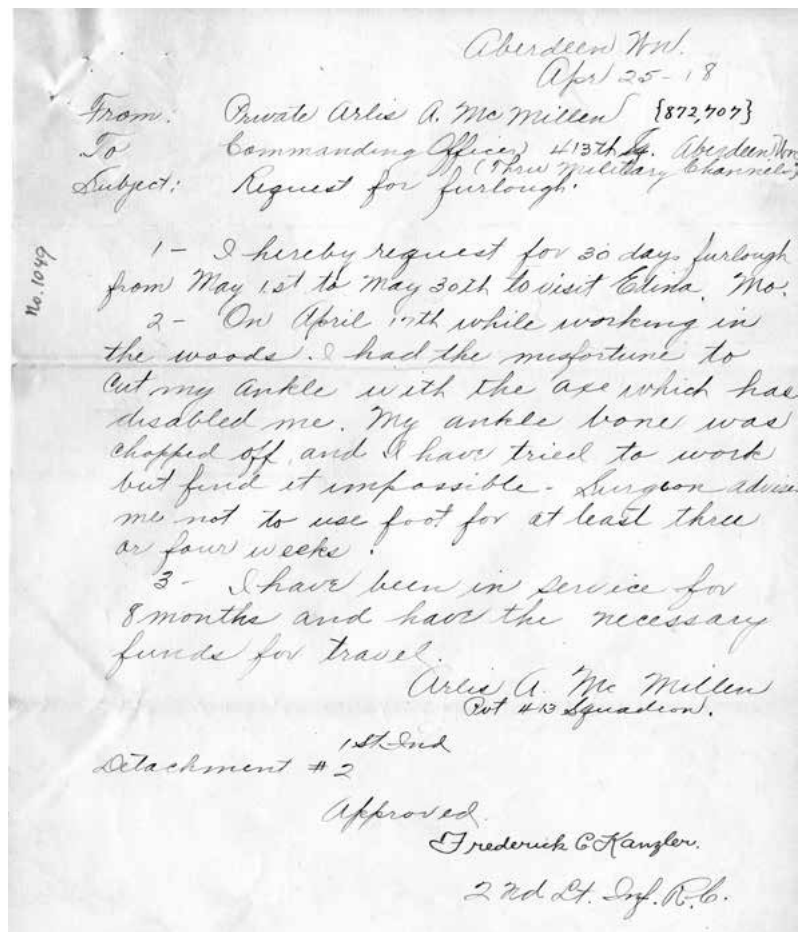 Aberdeen Wn.
Apr 25-18
From: Private Arlis A. McMillen {872,707}
To Commanding Officer 413th Sq. Aberdeen Wn
(Thru Military Channels)
Subject: Request for furlough.
No. 1049
1- I hereby request for 30 days furlough
from May 1st to May 30th to visit Edina, Mo.
2- On April 17th while working in
the woods. I had the misfortune to
cut my ankle with the axe which has
disabled me. My ankle bone was
chopped off, and I have tried to work
but find it impossible - Surgeon advise
me not to use foot for at least three
or four weeks.
3- I have been in service for
8 months and have the necessary
funds for travel.
Arlis A. McMillen
Pvt 413 Squadron.
1st Ind
Detachment #2
Approved
Frederick C Kanzler.
2nd Lt. Inf. R.C.